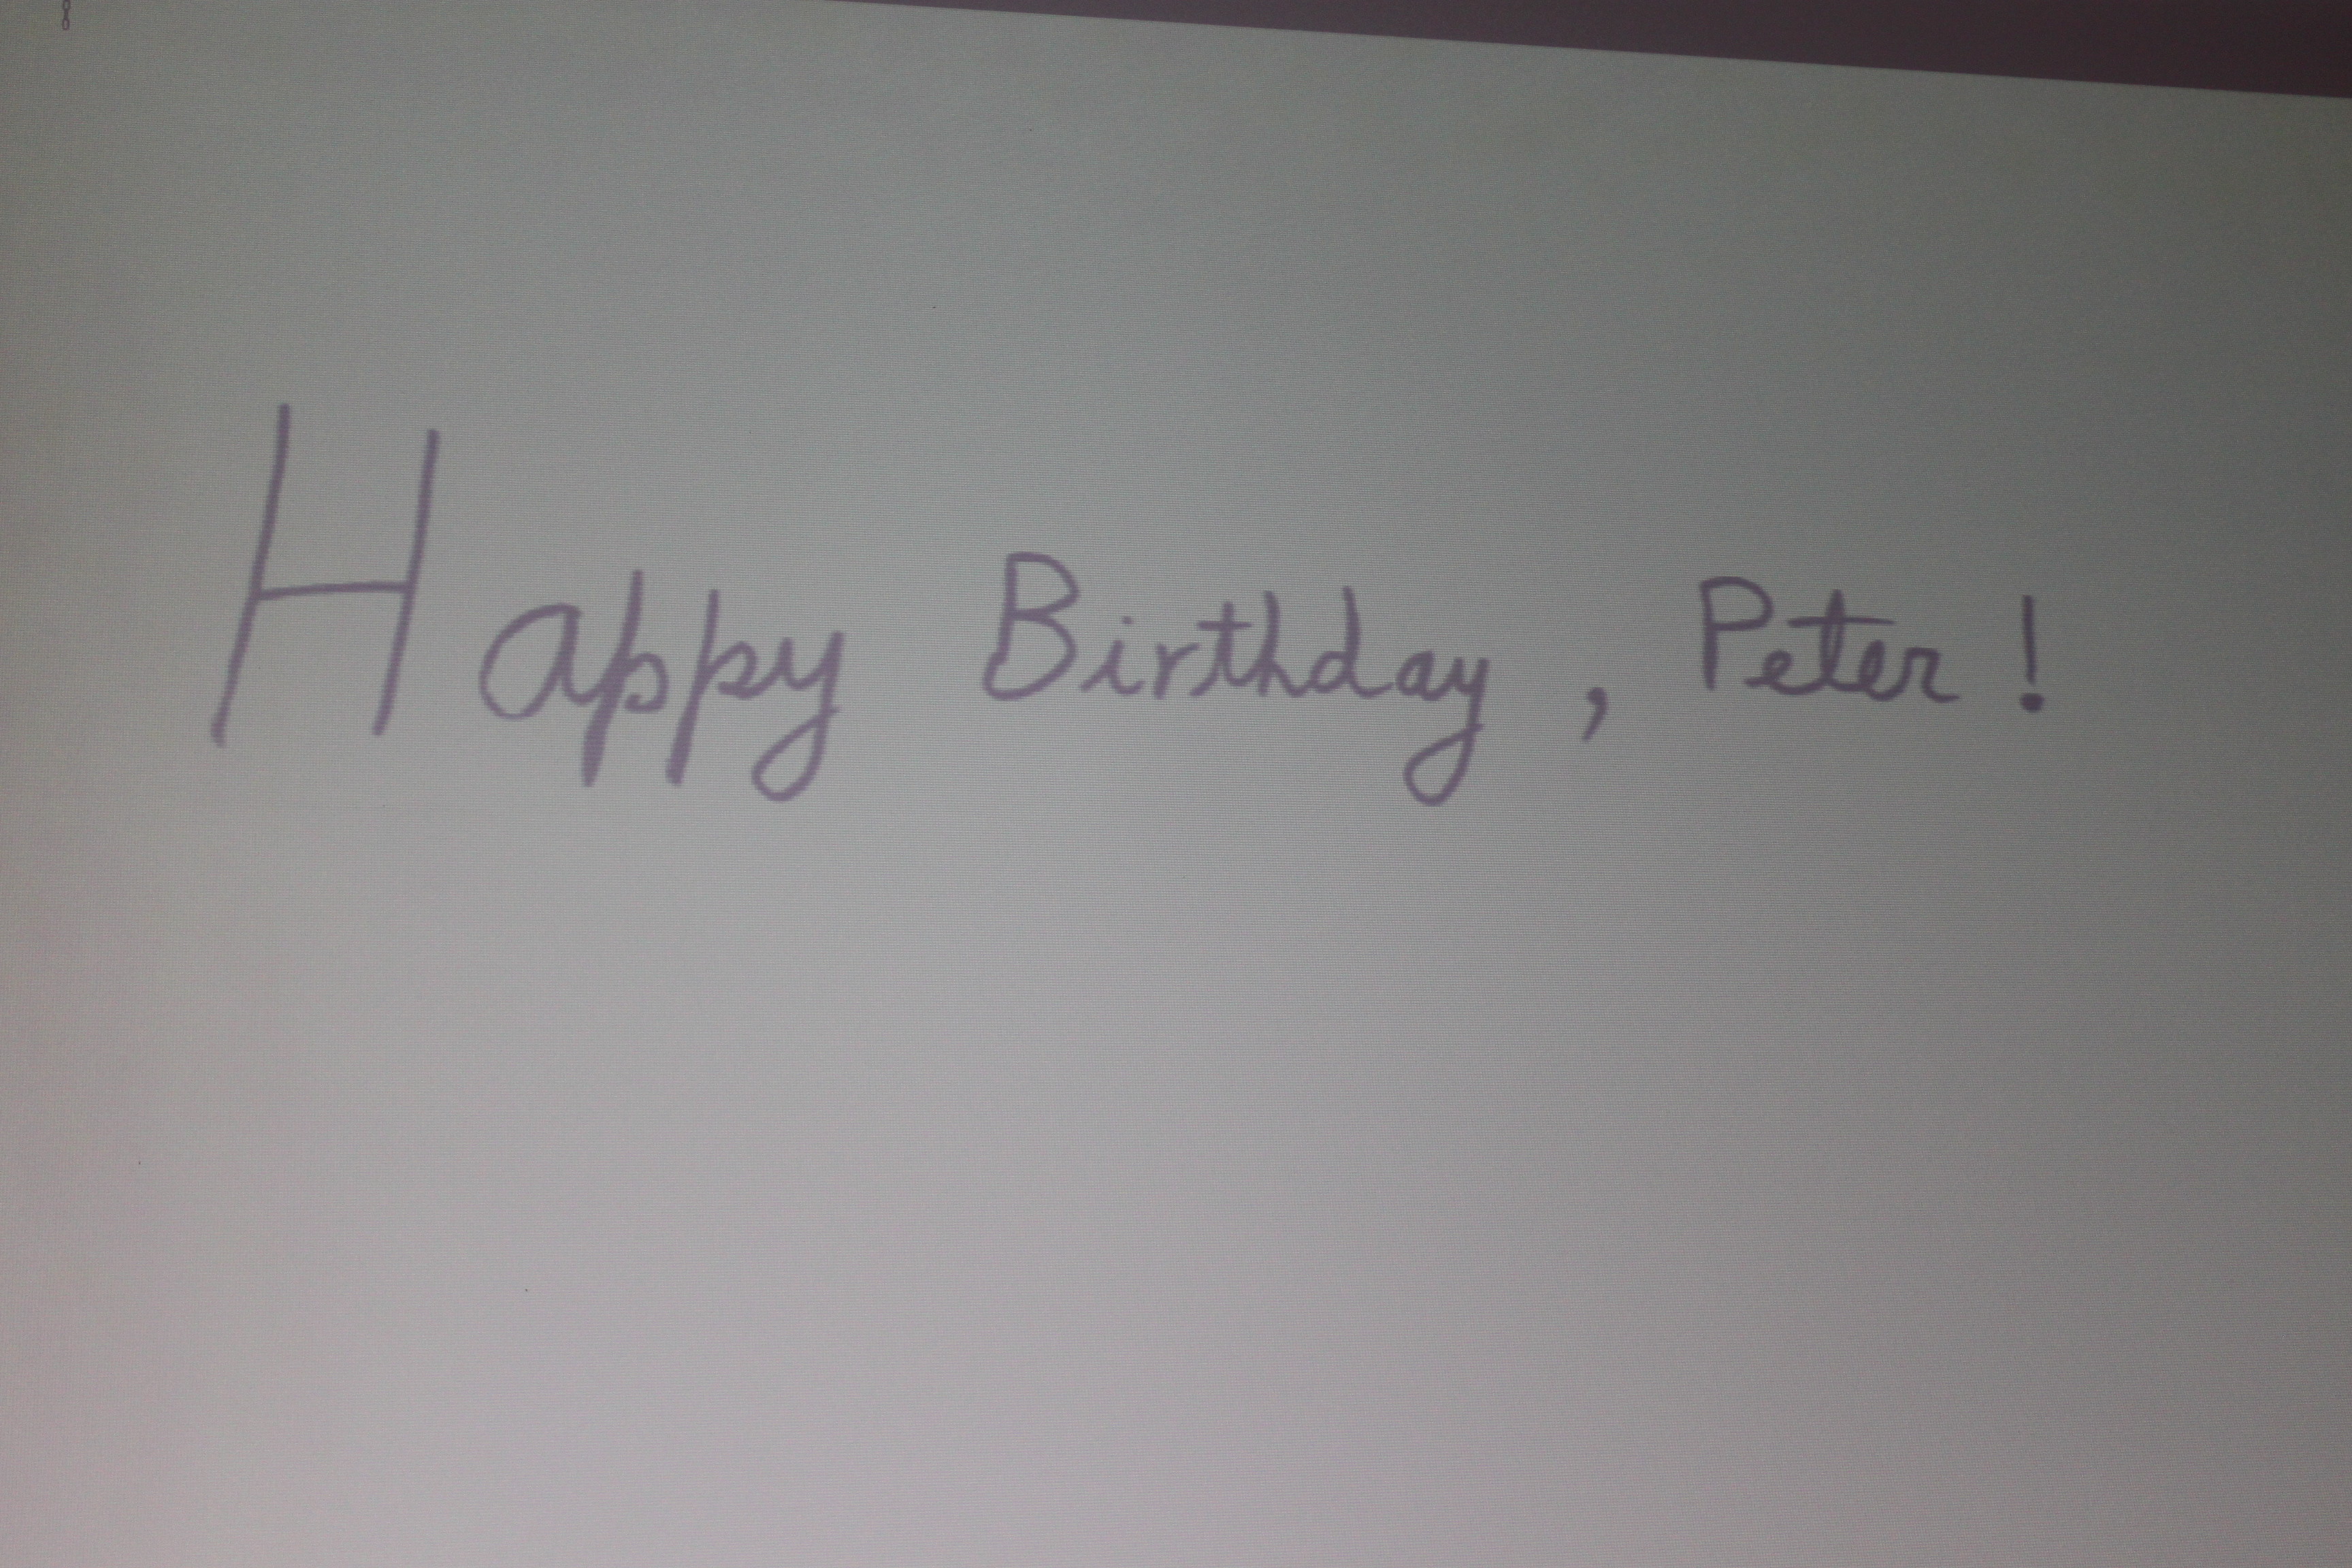 Happy Birthday, Peter!